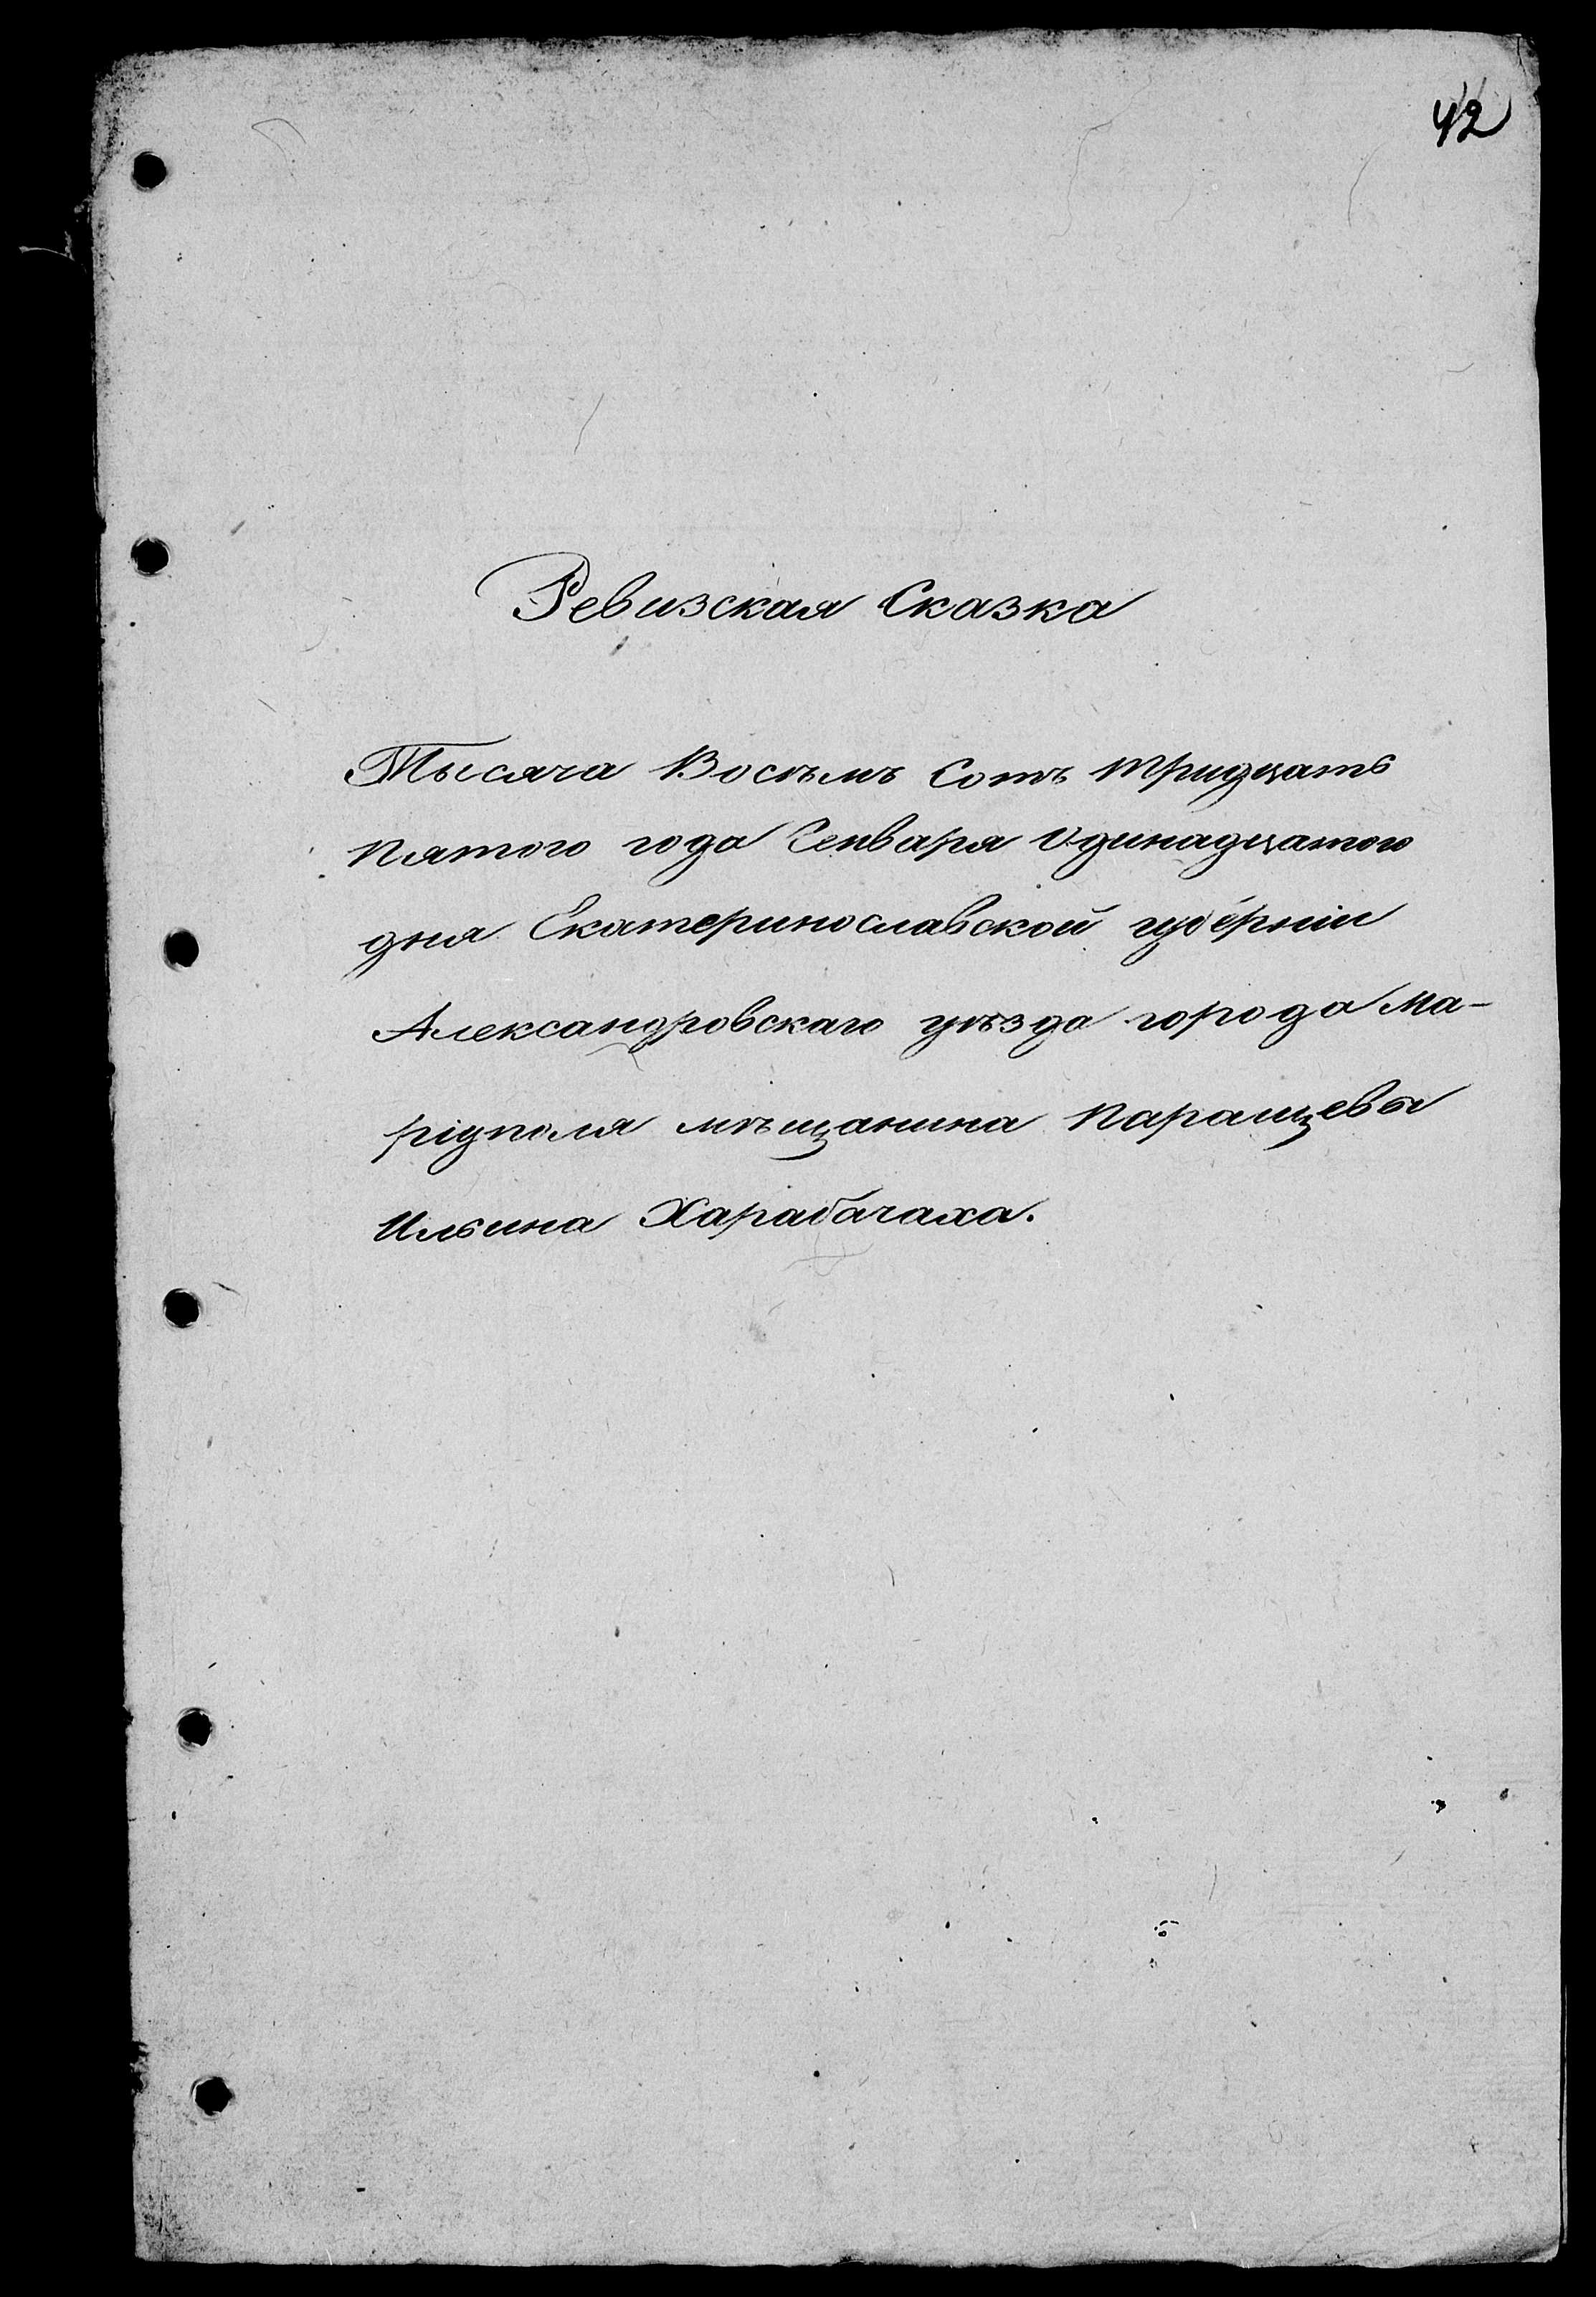 42
Ревизская Сказка
Тысяча Восѣмъ Сотъ тридцать
пятого года Генваря Одинадцатого
дня Екатеринославской губерніи
Александровскаго уѣзда города Ма-
ріуполя мѣщанина Паращевы
Ильина Харабачаха.